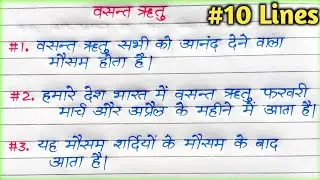 #10 Lines
वसन्त ऋतु
#1. वसन्त ऋतु सभी को आनंद देने वाला
मौसम होता है।
#2. हमारे देश भारत में वसन्त ऋतु फरवरी
मार्च और अप्रैल के महीने में आता है।
#3. यह मौसम शर्दियों के मौसम के बाद
आता है।